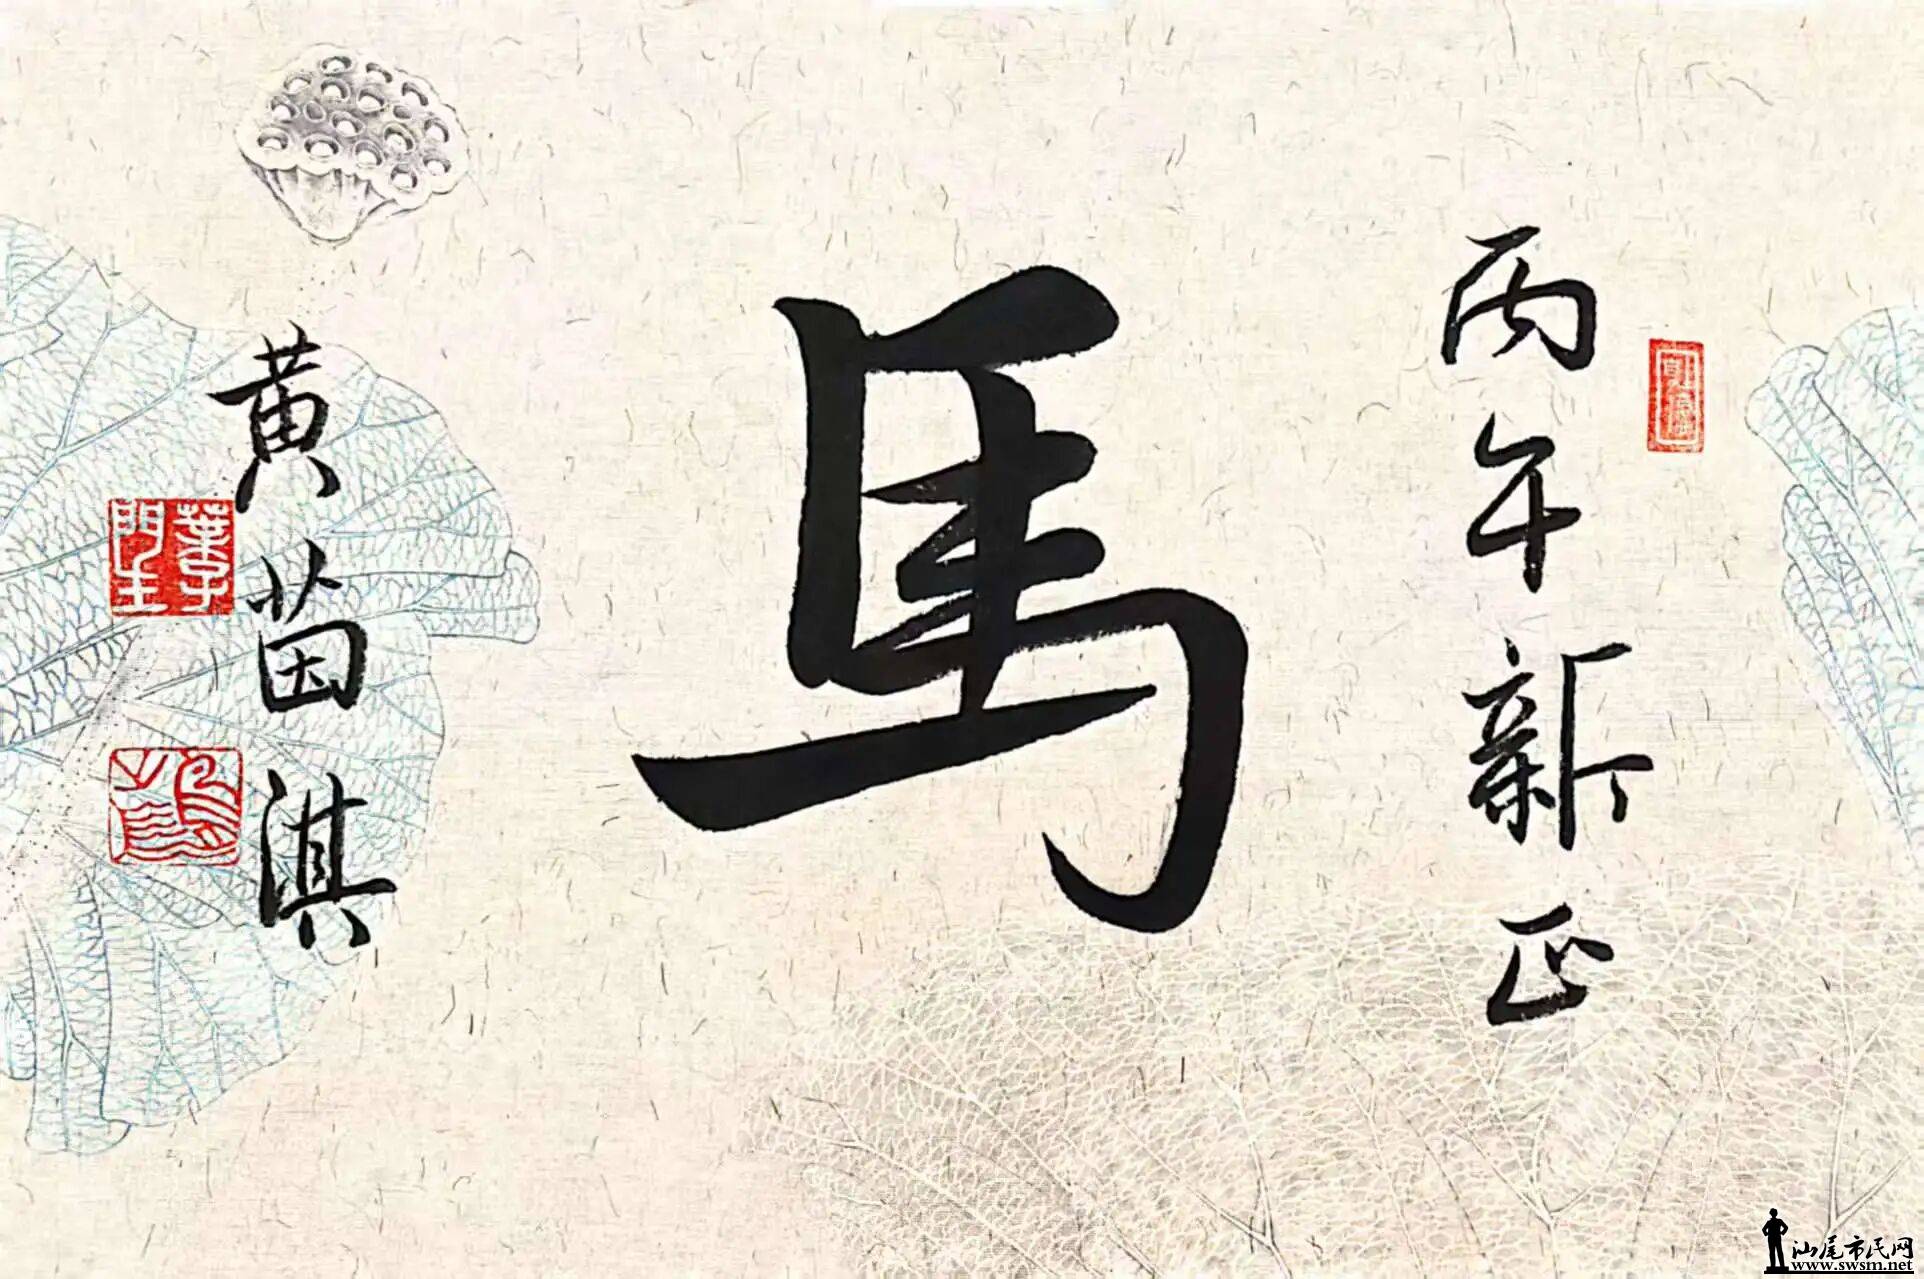 丙午新正
馬
黄茵淇
門生
汕尾市民网
www.swsm.net